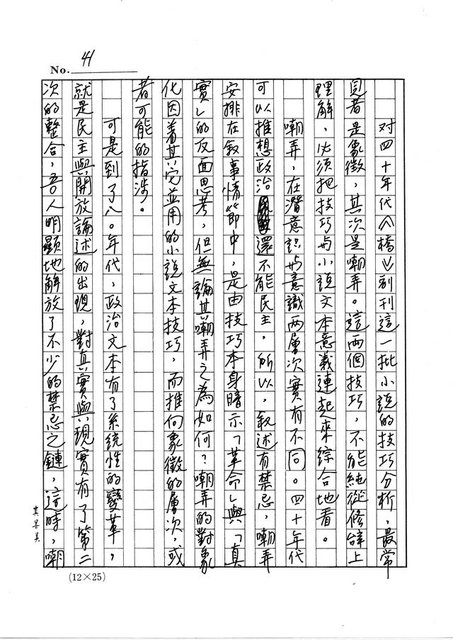 No. 41
对四十年代《橋》副刊這一批小說的技巧分析，最常
見者是象徵，其次是嘲弄。這兩個技巧，不能純從修辞上
理解，必須把技巧与小說文本意義連起來綜合地看。
嘲弄，在潛意識与意識兩層次實有不同。四十年代
可以推想政治還不能民主，所以，敘述有禁忌，嘲弄
安排在敘事情節中，是由技巧本身暗示「革命」與「真
實」的反面思考，但無論其嘲弄之為如何？嘲弄的對象
化因着其完並用的小說文本技巧，而推向象徵的層次，或
者可能的指涉。
可是到了八○年代，政治文本有了系統性的變革，
就是民主與開放論述的出現，對真實與現實有了第二
次的整合，吾人明顯地解放了不少的禁忌之鏈，這時，嘲
(12×25)